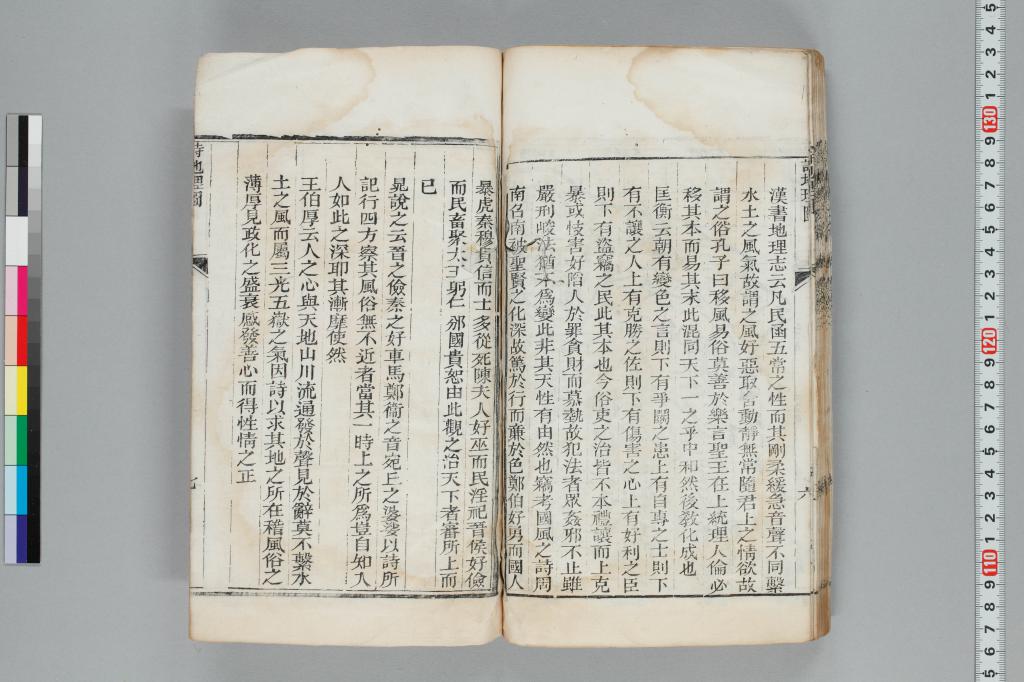 漢書地理志云凡民函五常之性而其剛柔緩急音聲不同繫
水土之風氣故謂之風好惡取舍動靜無常隨君上之情欲故
謂之俗孔子曰移風易俗莫善於樂言聖王在上統理人倫必
移其本而易其末此混同天下一之乎中和然後教化成也
匡衡云朝有變色之言則下有爭鬭之患上有自專之士則下
有不讓之人上有克勝之佐則下有傷害之心上有好利之臣
則下有盜竊之民此其本也今俗吏之治皆不本禮讓而上克
暴或忮害好陷人於罪貪財而慕埶故犯法者眾姦邪不止雖
嚴刑峻法猶不爲變此非其天性有由然也竊考國風之詩周
南召南被聖賢之化深故篤於行而亷於色鄭伯好勇而國人
暴虎秦穆貴信而士多從死陳夫人好巫而民淫祀晉侯好儉
而民畜聚太王躬仁邠國貴恕由此觀之治天下者審所上而
已
晁說之云晉之儉秦之好車馬鄭衞之音宛丘之婆娑以詩所
記行四方察其風俗無不近者當其一時上之所爲豈自知入
人如此之深耶其漸靡使然
王伯厚云人之心與天地山川流通發於聲見於辭莫不繫水
土之風而屬三光五嶽之氣因詩以求其地之所在稽風俗之
薄厚見政化之盛衰感發善心而得性情之正
詩地理圖
七